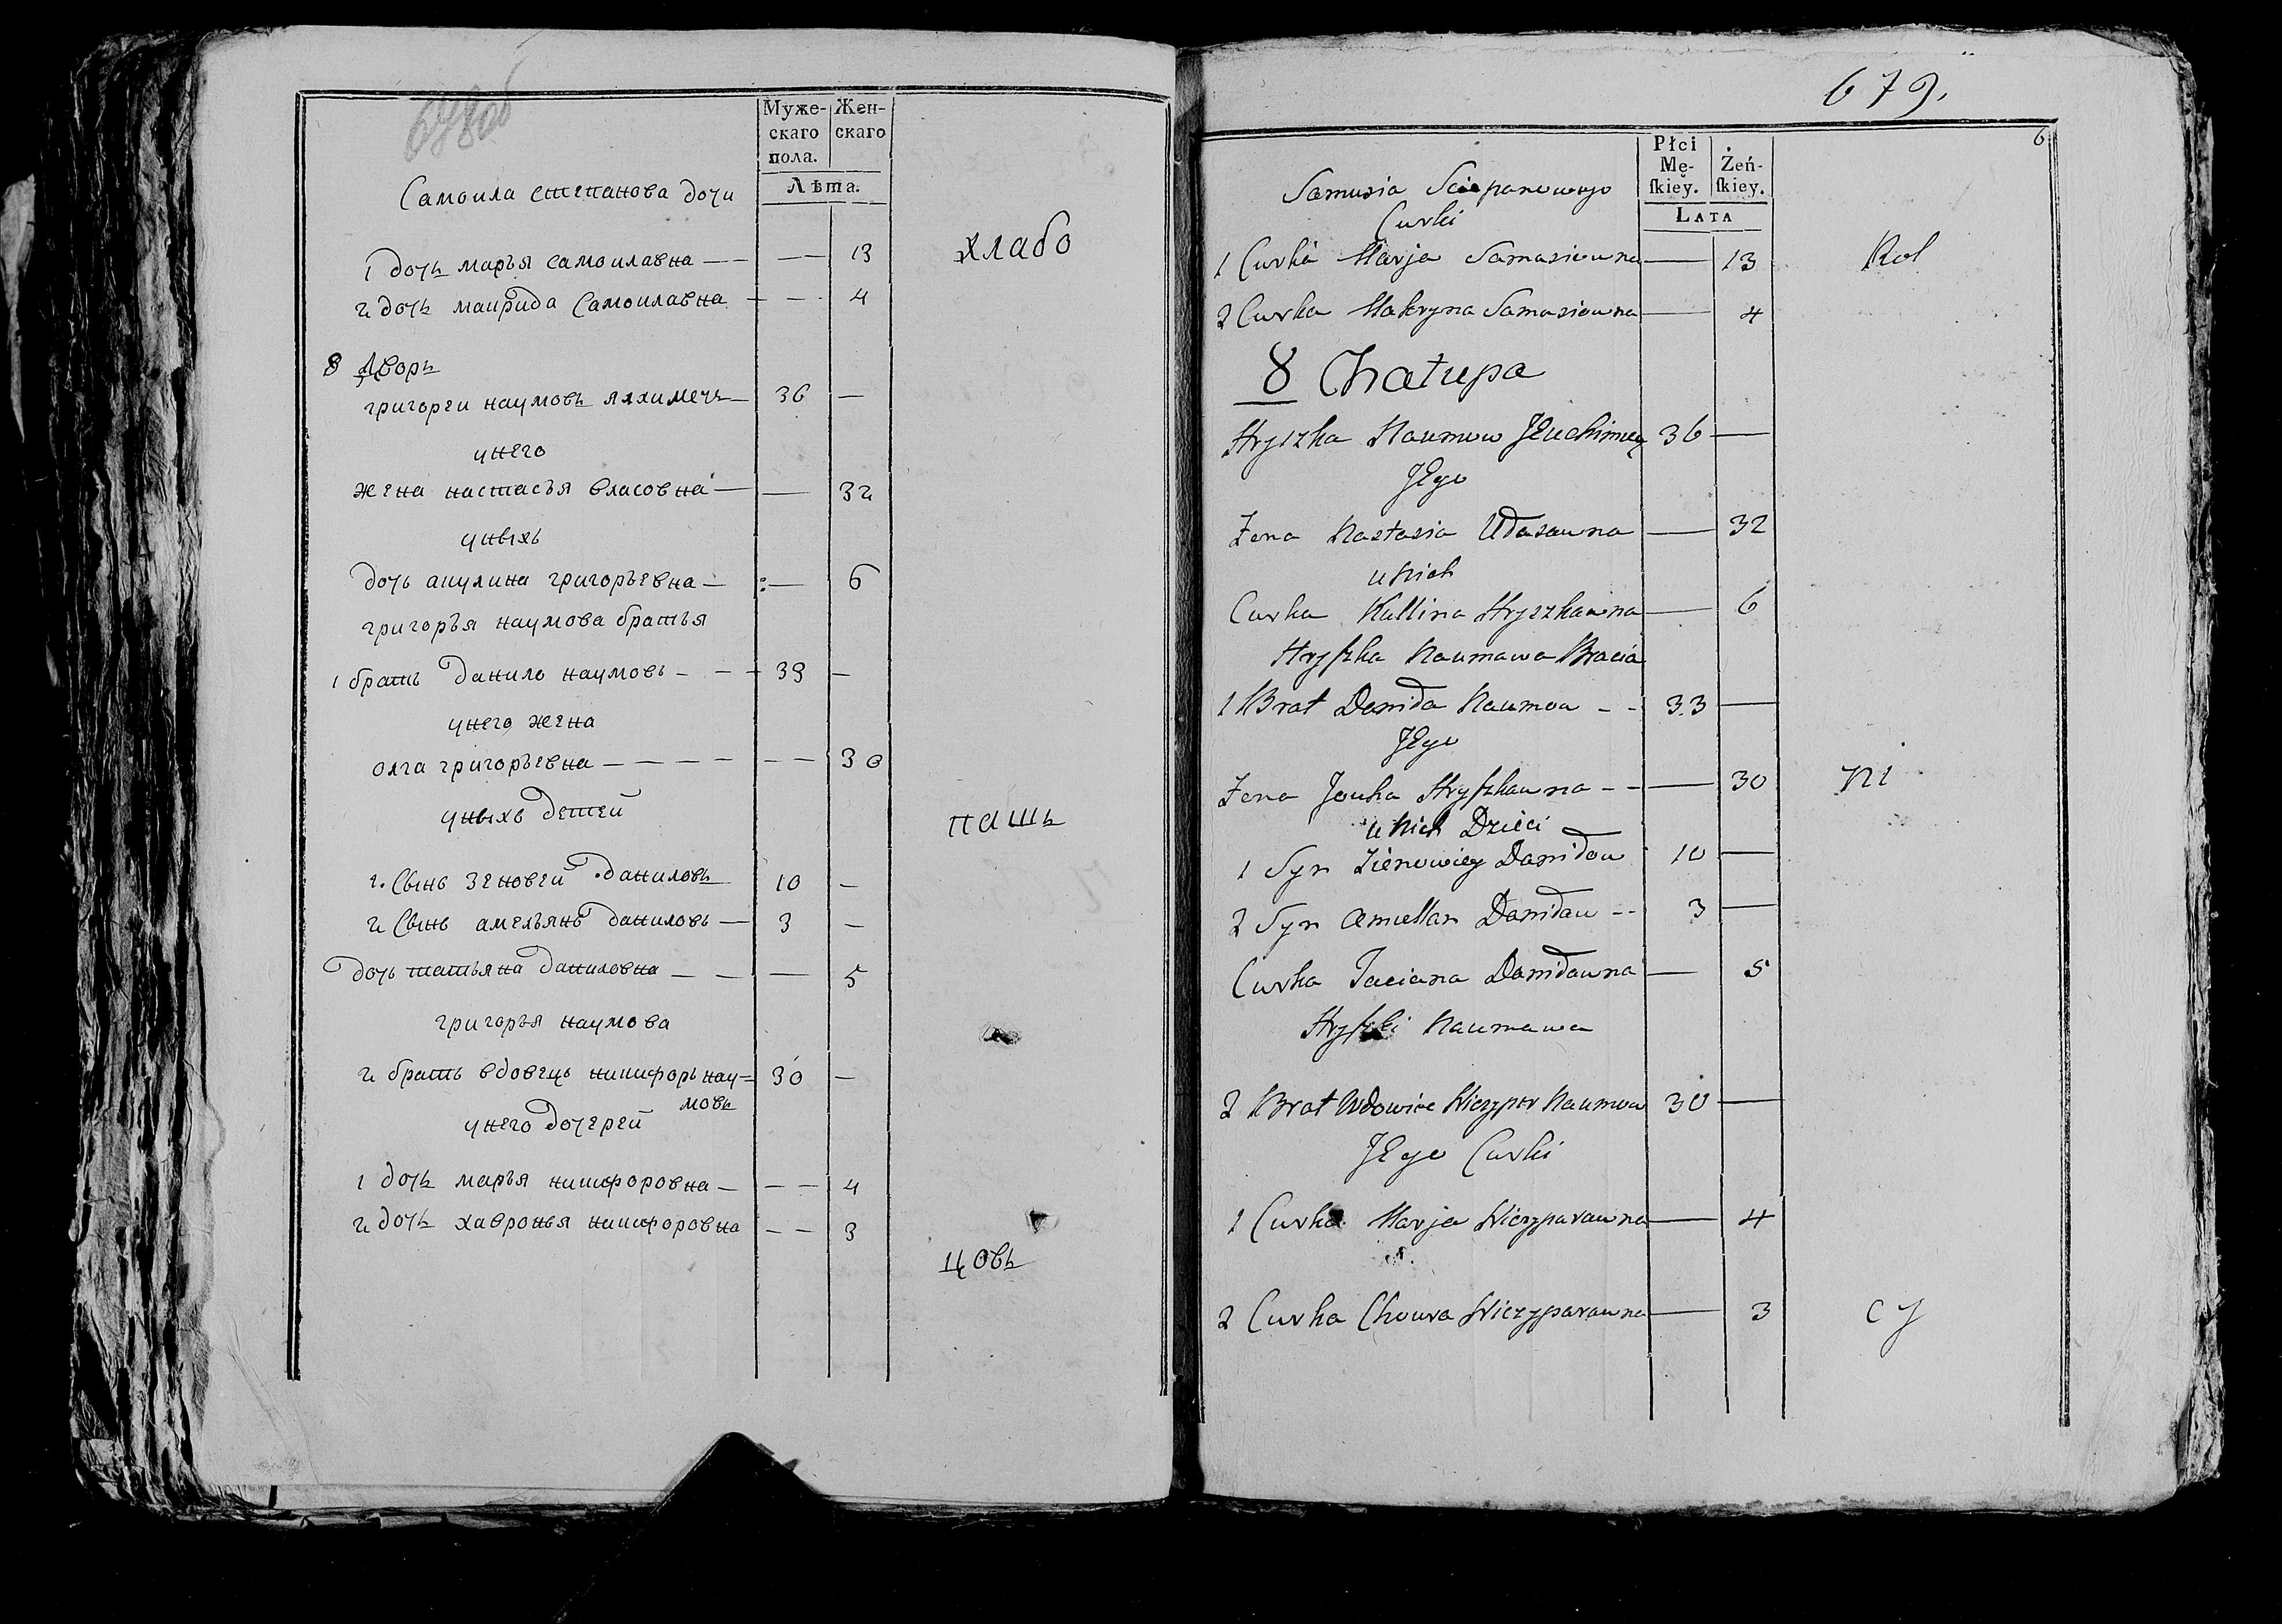 678об
Муже-
скаго
пола.
Жен-
скаго
Лѣта.
Самоила степанова дочи
1 дочь марья самоилавна — — 13
хлабо
2 дочь макрида Самоилавна — 4
8 Дворъ
григореи наумовъ ялхимечъ — 36 —
унего
жена настасья власовна — — 32
уныхъ
дочь акулина григорьевна — — 6
григорья наумова братья
1 братъ данило наумовъ — — 33 —
унего жена
олга григорьевна — — — — 30
уныхъ детей
пашъ
1. Сынъ зеновей даниловъ 10 —
2 Сынъ амельянъ даниловъ — 3 —
дочь татьяна даниловна — — 5
григорья наумова
2 братъ вдовецъ никифоръ нау= 30 —
мовъ
унего дочерей
1 дочь марья никифоровна — — — 4
2 дочь хавронья никифоровна — — 3
цовъ
679.
6
Płci
Mę-
ſkiey.
Żeń-
ſkiey.
Lata
Samusia Sciepanowego
Curki
1 Curka Marja Samusiowna — 13
Rol
2 Curka Makryna Samusiowna — 4
8 Chałupa
Hryszka Naumow JEuchimiey 36 —
JEgo
Zena Nastasia Ułasawna — 32
u Nich
Curka Kullina Hryszkawna — 6
Hryſzka Naumawa Bracia
1 Brat Daniła Naumow - - 33 —
JEgo
Zena Jouha Hryſzkawna - - — 30
ni
u Nich Dzieci
1 Syn Zienowiey Daniłow 10 —
2 Syn Amiellan Daniław - - 3 —
Curka Taciana Daniławna — 5
Hryſzki Naumawa
2 Brat Wdowiec Niczypor Naumow 30 —
JEgo Curki
1 Curka Marja Niczyparawna — 4
2 Curka Chowra Niczyparawna — 3
cy